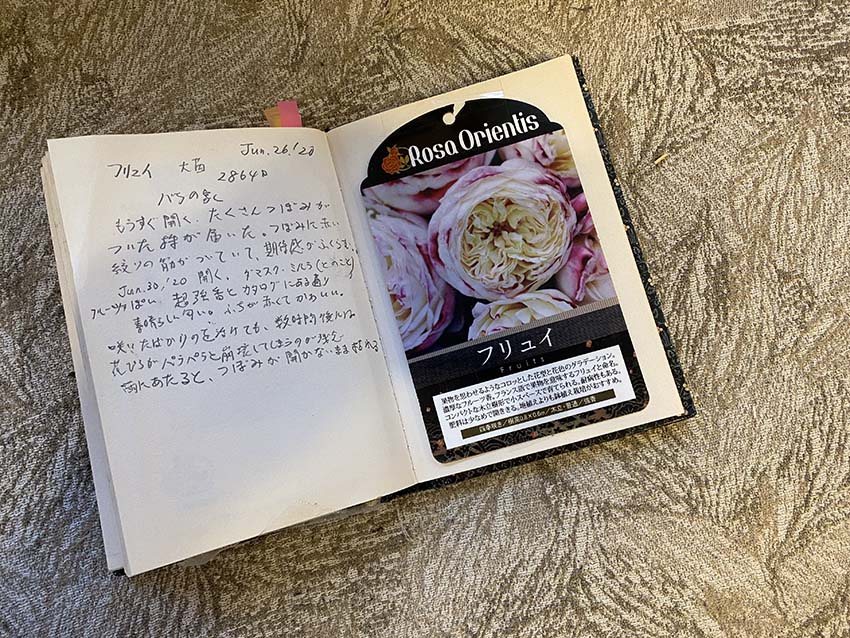 Jun. 26. '20
フリュイ 大苗
2864円
バラの家
もうすぐ開く、たくさんつぼみが
ついた鉢が届いた。つぼみに赤い
絞りの筋がついていて、期待感がふくらむ。
Jun. 30. '20 開く。ダマスク、ミルラ(とのこと)
フルーツっぽい 超強香とカタログにある通り
素晴らしい匂い。ふちが赤くてかわいい。
咲いたばかりの を分けても、数時間後には
花びらがバラバラと崩壊してしまうのが残念
雨にあたると、つぼみが開かないまま
Rosa Orientis
フリュイ
Fruits
果物を思わせるようなコロッとした花型と花色のグラデーション。
濃厚なフルーツ香。フランス語で果物を意味するフリュイと命名。
コンパクトな木立樹形で小スペースで育てられる。耐病性もある。
肥料は少なめで開ききる。地植えよりも鉢植え栽培がおすすめ。
四季咲き/樹高0.8×0.6m/木立・普通/強香